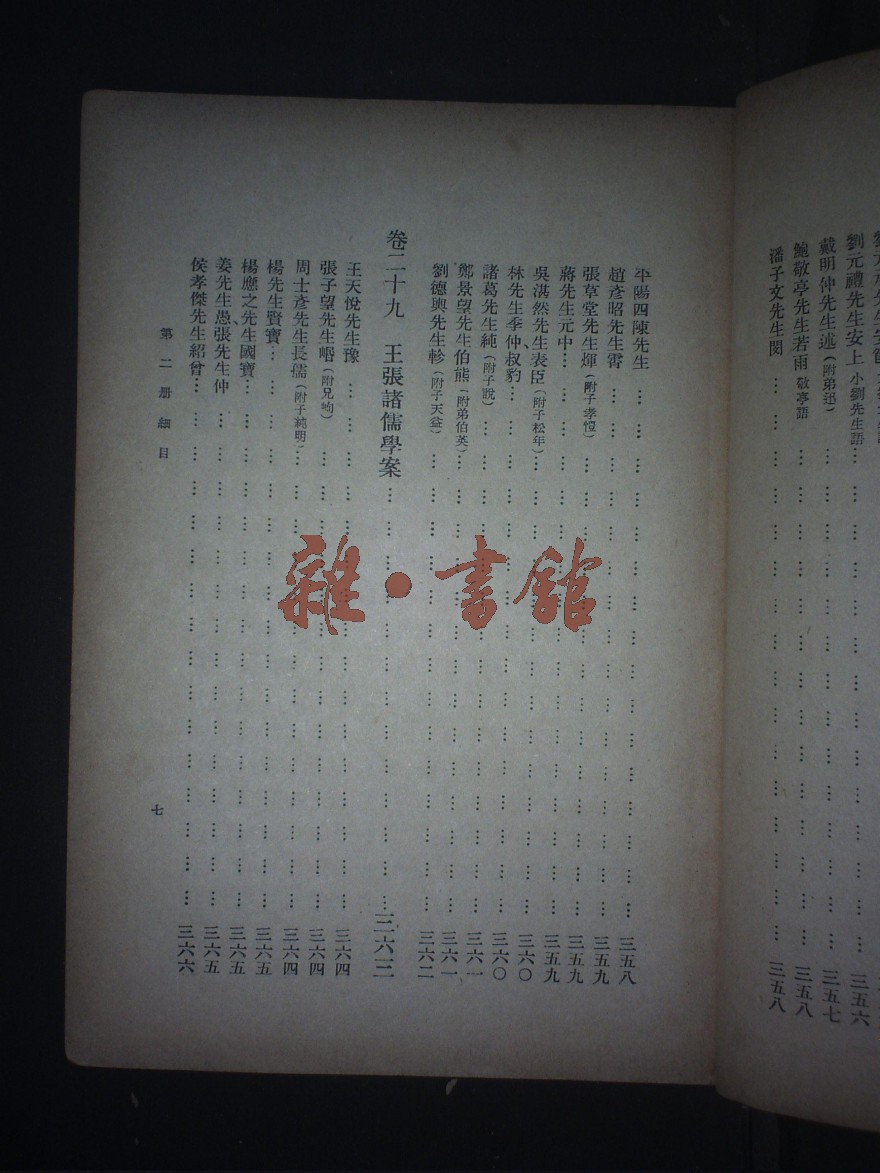 劉元禮先生安上 小劉先生語 … … … … … … … … … 三五六
戴明仲先生述(附弟迅) … … … … … … … … … 三五七
鮑敬亭先生若雨 敬亭語 … … … … … … … … … 三五八
潘子文先生閔 … … … … … … … … … 三五八
平陽四陳先生 … … … … … … … … … 三五八
趙彥昭先生霄 … … … … … … … … … 三五九
張草堂先生煇(附子孝愷) … … … … … … … … … 三五九
蔣先生元中 … … … … … … … … … 三五九
吳湛然先生表臣(附子松年) … … … … … … … … … 三六〇
林先生季仲、叔豹 … … … … … … … … … 三六〇
諸葛先生純(附子說) … … … … … … … … … 三六一
鄭景望先生伯熊(附弟伯英) … … … … … … … … … 三六一
劉德興先生軫(附子天益) … … … … … … … … … 三六二
卷二十九 王張諸儒學案 … … … … … … … … … 三六三
王天悅先生豫 … … … … … … … … … 三六四
張子望先生㟭(附兄峋) … … … … … … … … … 三六四
周士彥先生長儒(附子純明) … … … … … … … … … 三六四
楊先生賢寶 … … … … … … … … … 三六五
楊應之先生國寶 … … … … … … … … … 三六五
姜先生愚、張先生仲 … … … … … … … … … 三六五
侯孝傑先生紹曾 … … … … … … … … … 三六六
第二册細目
七
雜·書館